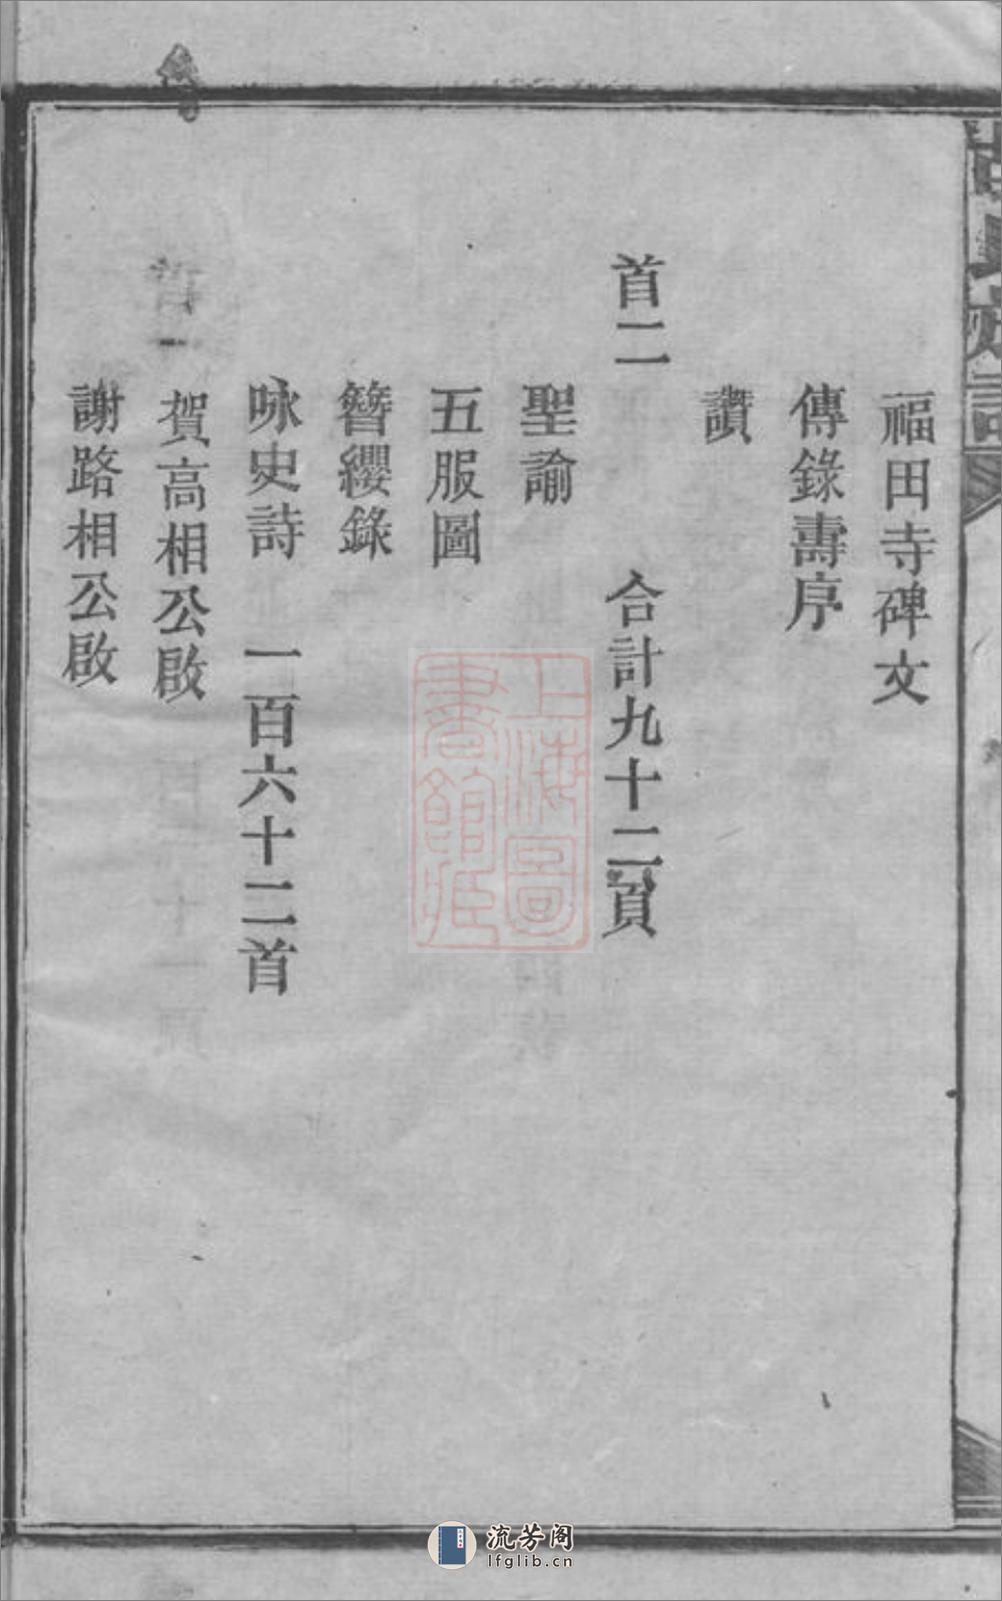 福田寺碑文
傳錄壽序
讃
首二 合計九十二頁
聖諭
五服圖
簪纓錄
咏史詩 一百六十二首
賀高相公啟
謝路相公啟
上海圖書館藏
流芳阁
lfglib.cn